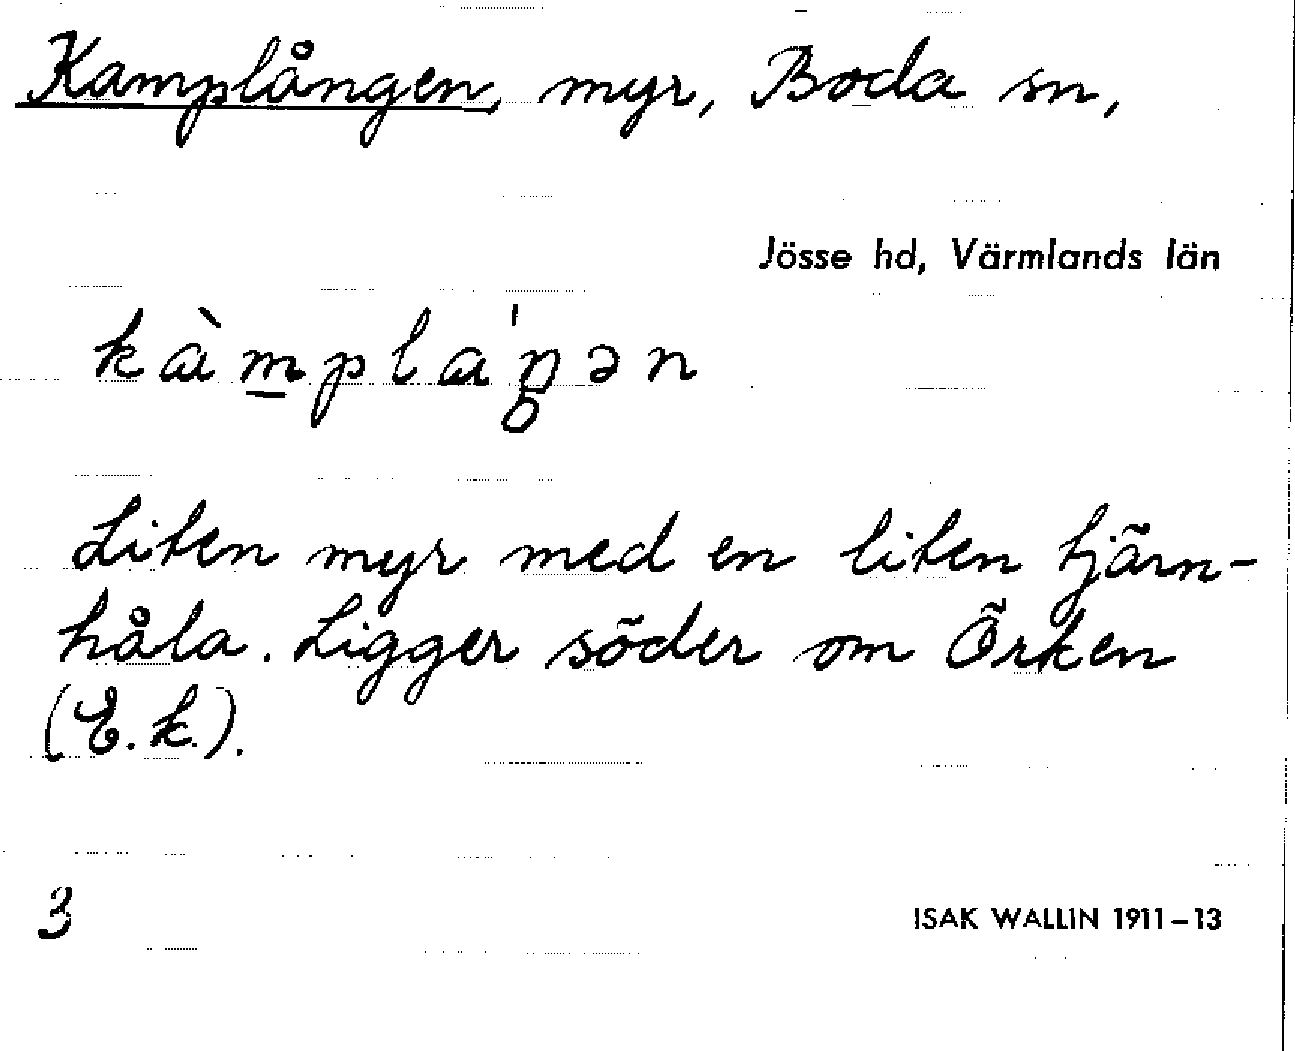 Kamplången, myr, Boda sn,
Jösse hd, Värmlands län
kàm̱pla'ŋən
Liten myr med en liten tjärn-
håla. Ligger söder om Örken
(E.k.).
3
ISAK WALLIN 1911–13